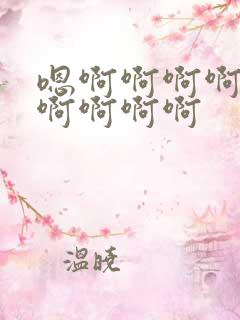 嗯啊啊啊啊
啊啊啊啊
温晓